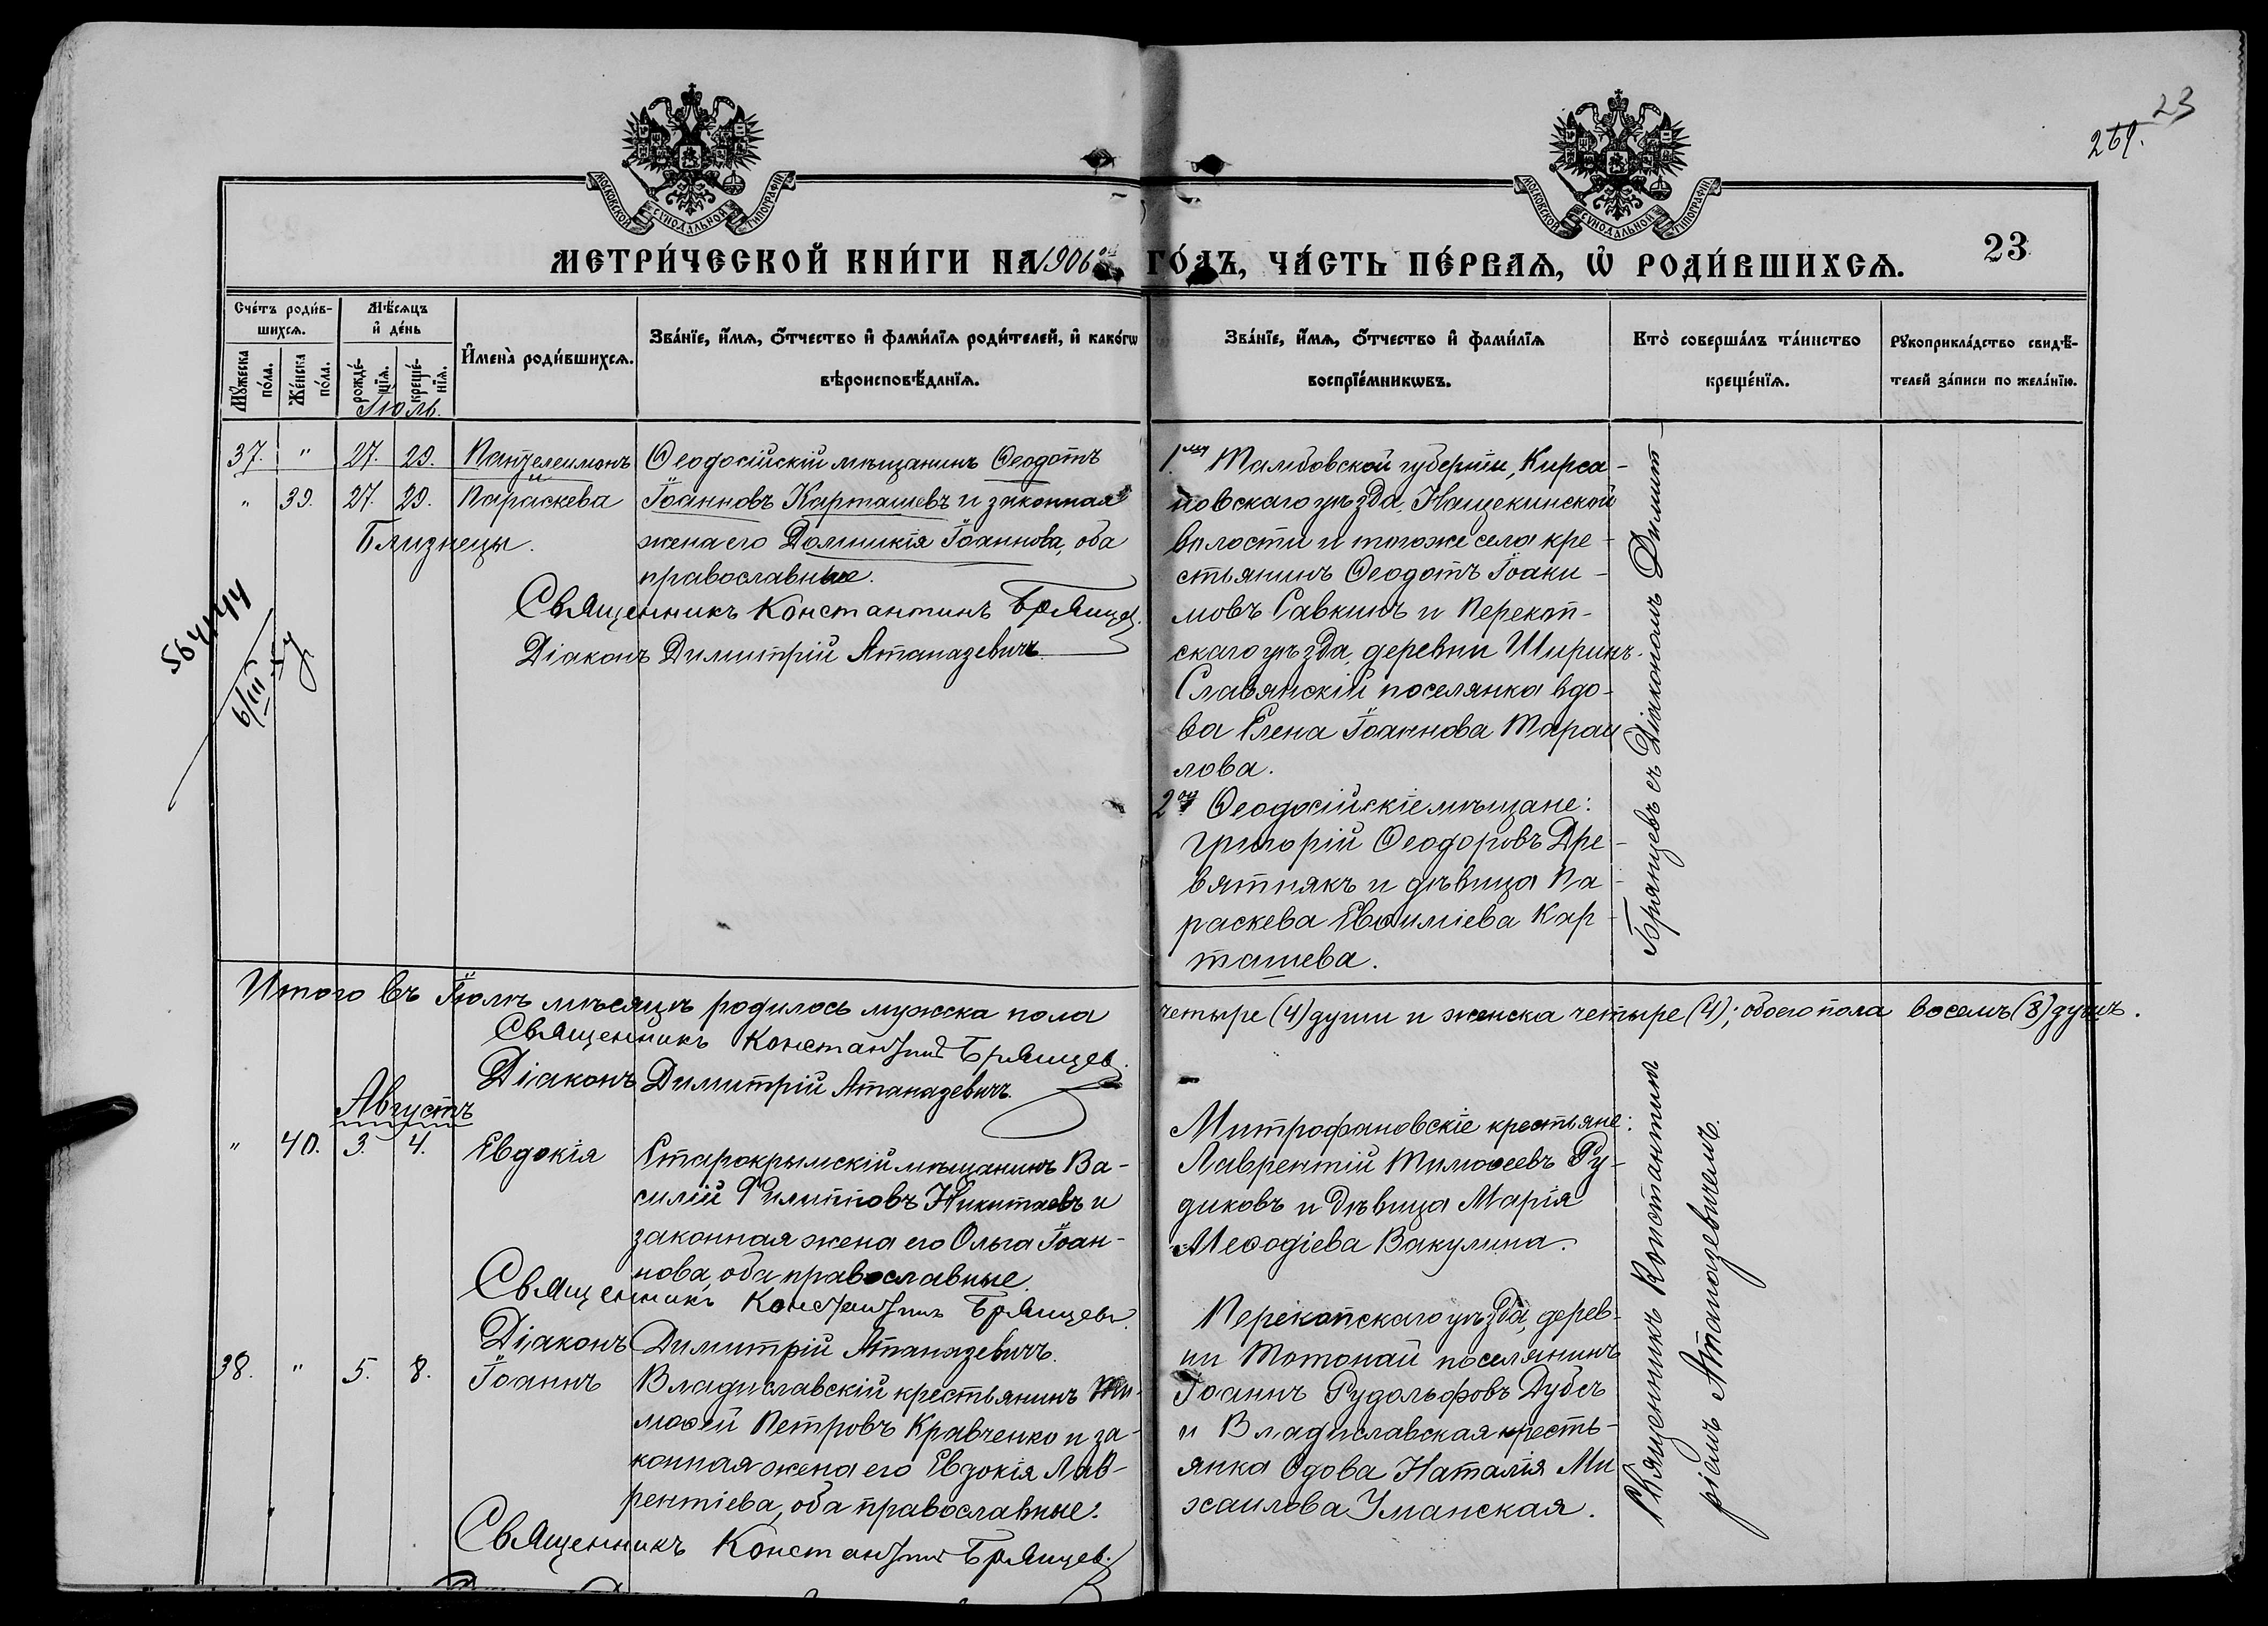 23
269.
МОСКОВСКОЙ СѴНОДАЛЬНОЙ ТИПОГРАФІИ.
МОСКОВСКОЙ СѴНОДАЛЬНОЙ ТИПОГРАФІИ.
МЕТРИ́ЧЕСКОЙ КНИ́ГИ НА 1906 ГО́ДЪ, ЧА́СТЬ ПЕ́РВАѦ, Ѡ҆ РОДИ́ВШИХСѦ.
23
Сче́тъ роди́в-
шихсѧ.
Мꙋ́жеска по́ла.
Же́нска по́ла.
Мѣ́сѧцъ
и҆ де́нь
рожде́-
нїѧ.
креще́-
нїѧ.
И҆мена̀ роди́вшихсѧ.
Зва́нїе, и҆́мѧ, ѻ҆́тчество и҆ фами́лїѧ роди́телей, и҆ како́гѡ
вѣроисповѣ́данїѧ.
Зва́нїе, и҆́мѧ, ѻ҆́тчество и҆ фами́лїѧ
воспрїе́мникѡвъ.
Кто̀ соверша́лъ та́инство
креще́нїѧ.
Рꙋкоприкла́дство свидѣ́-
телей за́писи по жела́нїю.
Іюль.
37. " 27. 29. Пантелеимонъ
" 39. 27. 29. Параскева
Близнецы.
Ѳеодосійскій мѣщанинъ Ѳеодотъ
Іоанновъ Карташевъ и законная
жена его Домникія Іоаннова, оба
православные.
Священникъ Константинъ Брянцев.
Діаконъ Димитрій Атаназевичъ
564/44
6/III
1го Тамбовской губерніи, Кирса-
новскаго уѣзда, Нащекинской
волости и тогоже села кре-
стьянинъ Ѳеодотъ Іоаки-
мовъ Савкинъ и Перекоп-
скаго уѣзда, деревни Ширинъ.
Славянскій поселянка вдо-
ва Елена Іоаннова Тараи
лова.
2ой Ѳеодосійскіе мѣщане:
Григорій Ѳеодоровъ Дре-
вятнякъ и дѣвица Па-
раскева Евѳиміева Кар-
ташева.
Брянцевъ съ Діакономъ Димит-
Итого въ Іюлѣ мѣсяцѣ родилось мужска пола четыре (4) души и женска четыре (4); обоего пола восемъ (8) душъ.
Священникъ Константинъ Брянцев.
Діаконъ Димитрій Атаназевичъ.
Августъ
" 40. 3. 4. Евдокія
Старокрымскій мѣщанинъ Ва-
силій Филипповъ Никитаевъ и
законная жена его Ольга Іоан-
нова, оба православные.
Священникъ Константинъ Брянцевъ.
Діаконъ Димитрій Атаназевичъ.
Митрофановскіе крестьяне:
Лаврентій Тимоѳеевъ Ру-
диковъ и дѣвица Марія
Меѳодіева Вакулина.
38. " 5. 8. Іоаннъ
Владиславскій крестьянинъ Ти-
моѳей Петровъ Кравченко и за-
конная жена его Евдокія Лав-
рентіева, оба православные.
Священникъ Константинъ Брянцев.
Перекопскаго уѣзда, дерев-
ни Тотонай поселянинъ
Іоаннъ Рудольфовъ Дубсъ
и Владиславская кресть-
янка вдова Наталія Ми
хаилова Уманская.
Священникъ Константинъ
ріемъ Атаназевичемъ.